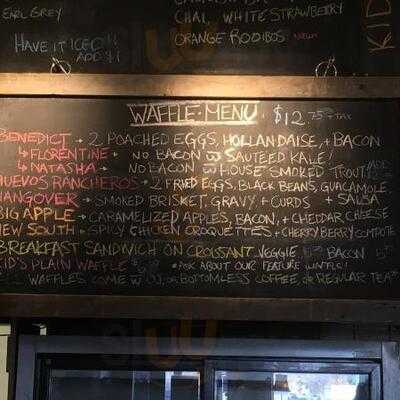 EARL GREY
CHAI, WHITE STRAWBERRY
HAVE IT ICED!!
ADD $1
ORANGE ROOIBOS NEW
KID
WAFFLE MENU $12.75 + TAX
BENEDICT → 2 POACHED EGGS, HOLLANDAISE, + BACON
↳ FLORENTINE → NO BACON W SAUTEED KALE!
↳ NATASHA → NO BACON W HOUSE SMOKED TROUT ADD
HUEVOS RANCHEROS → 2 FRIED EGGS, BLACK BEANS, GUACAMOLE, + SALSA
HANGOVER → SMOKED BRISKET, GRAVY, + CURDS
BIG APPLE → CARAMELIZED APPLES, BACON, + CHEDDAR CHEESE
NEW SOUTH → SPICY CHICKEN CROQUETTES + CHERRY BERRY COMPOTE
BREAKFAST SANDWICH ON CROISSANT. VEGGIE BACON
KID'S PLAIN WAFFLE * ASK ABOUT OUR FEATURE
WAFFLES COME W OJ, OR BOTTOMLESS COFFEE, OR REGULAR TEA